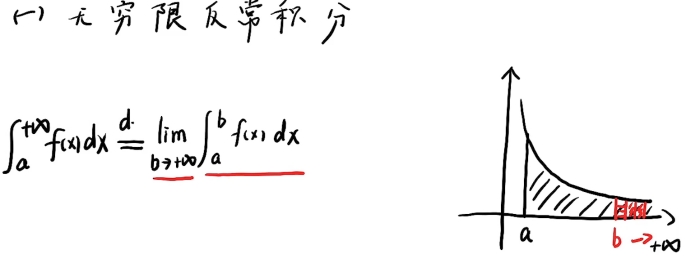 (一) 无穷限反常积分
∫ₐ^{+∞} f(x) dx ≝ lim_{b→+∞} ∫ₐᵇ f(x) dx
a b → +∞